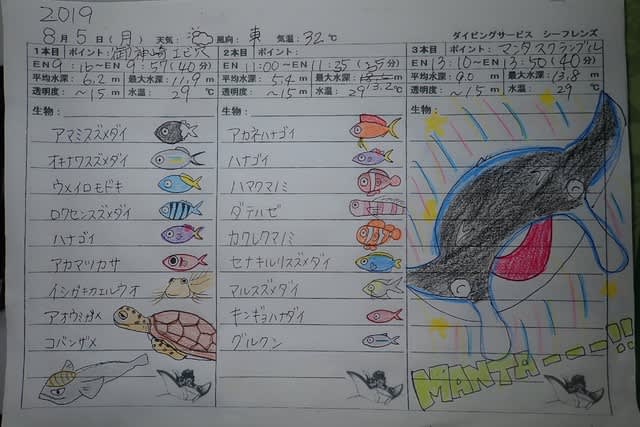 2019
8月5日(月) 天気: 風向: 東 気温: 32℃ ダイビングサービス シーフレンズ
1本目 ポイント: 御神崎エビ穴
EN 9:16~EN 9:57(40分)
平均水深: 6.2m 最大水深: 11.9m
透明度: ~15m 水温: 29℃
生物:
アマミスズメダイ
オキナワスズメダイ
ウメイロモドキ
ロクセンスズメダイ
ハナゴイ
アカマツカサ
イシガキカエルウオ
アオウミガメ
コバンザメ
2本目 ポイント:
EN 11:00~EN 11:35(35分)
平均水深: 5.4m 最大水深: 13.2m
透明度: ~15m 水温: 29℃
生物:
アカネハナゴイ
ハナゴイ
ハマクマノミ
ダテハゼ
カクレクマノミ
セナキルリスズメダイ
マルスズメダイ
キンギョハナダイ
グルクン
3本目 ポイント: マンタスクランブル
EN 13:10~EN 13:50(40分)
平均水深: 9.0m 最大水深: 13.8m
透明度: ~15m 水温: 29℃
生物:
MANTA---!!